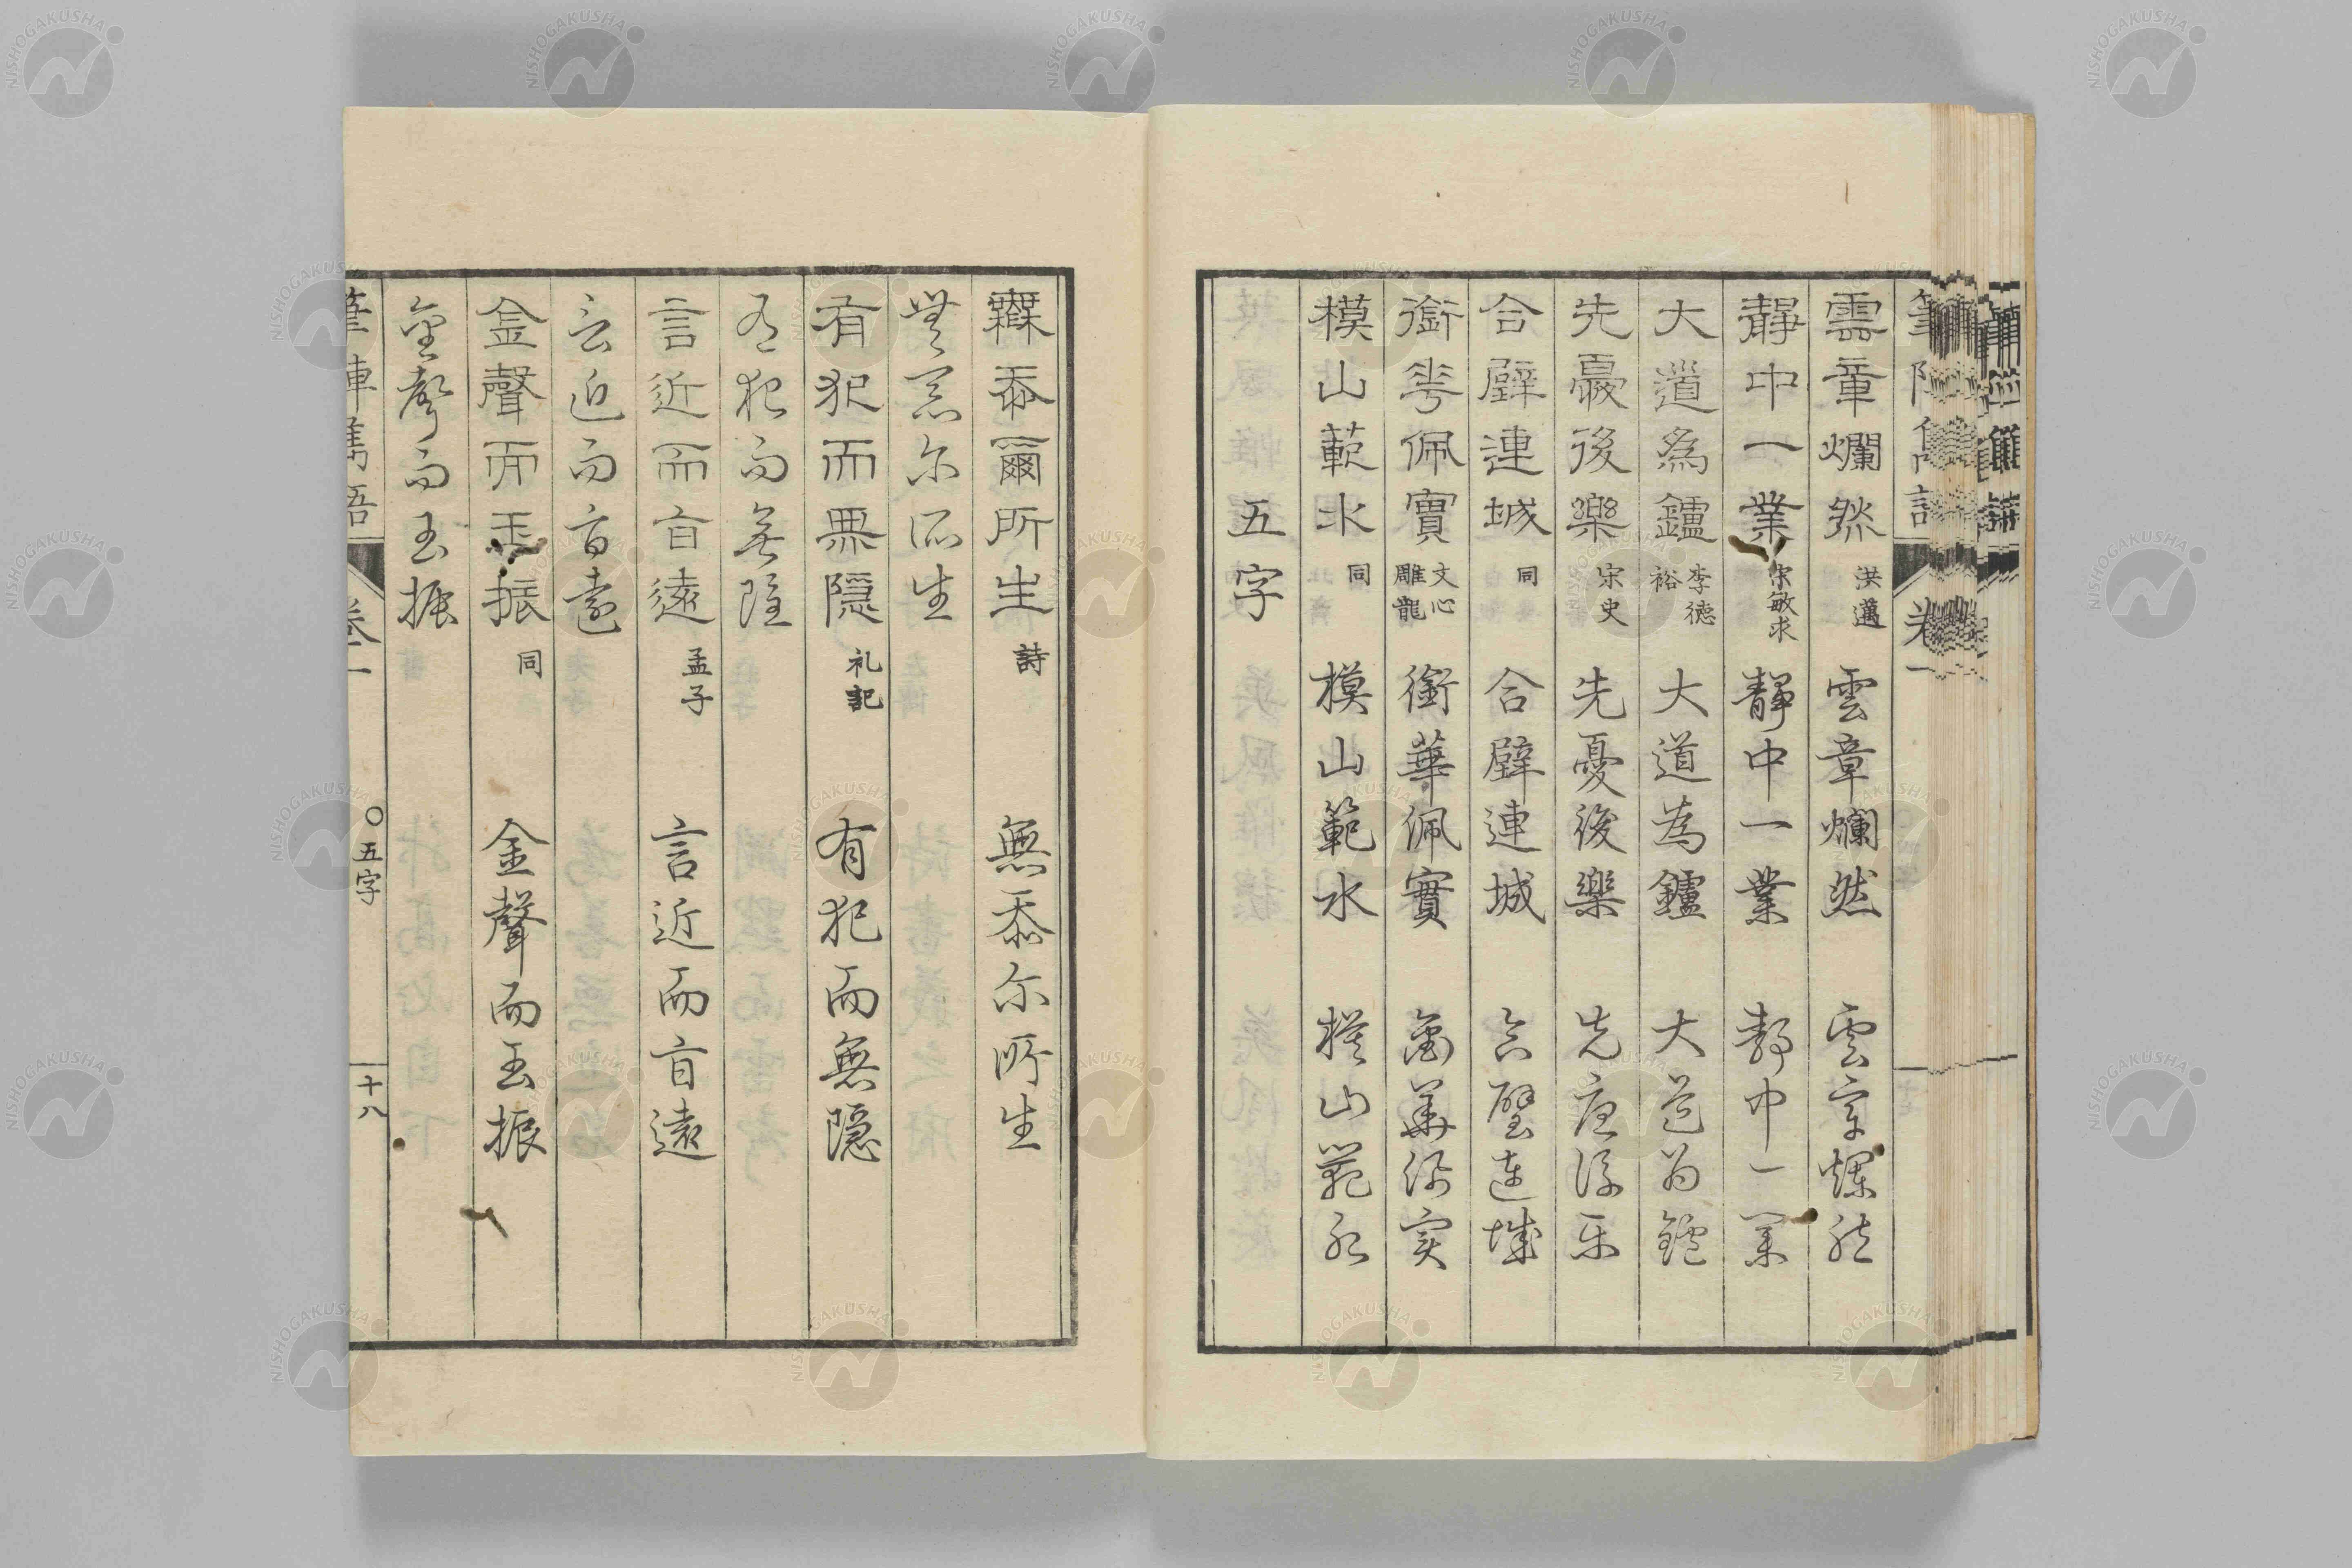 雲章爛然 洪邁 雲章爛然 雲章爛然
靜中一業 宋敏求 靜中一業 靜中一業
大道為鑪 李德裕 大道為鑪 大道為鑪
先憂後樂 宋史 先憂後樂 先憂後樂
合璧連城 同 合璧連城 合璧連城
銜華佩實 文心雕龍 銜華佩實 銜華佩實
模山範水 同 模山範水 模山範水
五字
無忝爾所生 詩 無忝尔所生
無忝尔所生
有犯而無隱 礼記 有犯而無隱
有犯而無隱
言近而旨遠 孟子 言近而旨遠
言近而旨遠
金聲而玉振 同 金聲而玉振
金聲而玉振
筆陣雋語 卷一 ○五字 十八
NISHOGAKUSHA